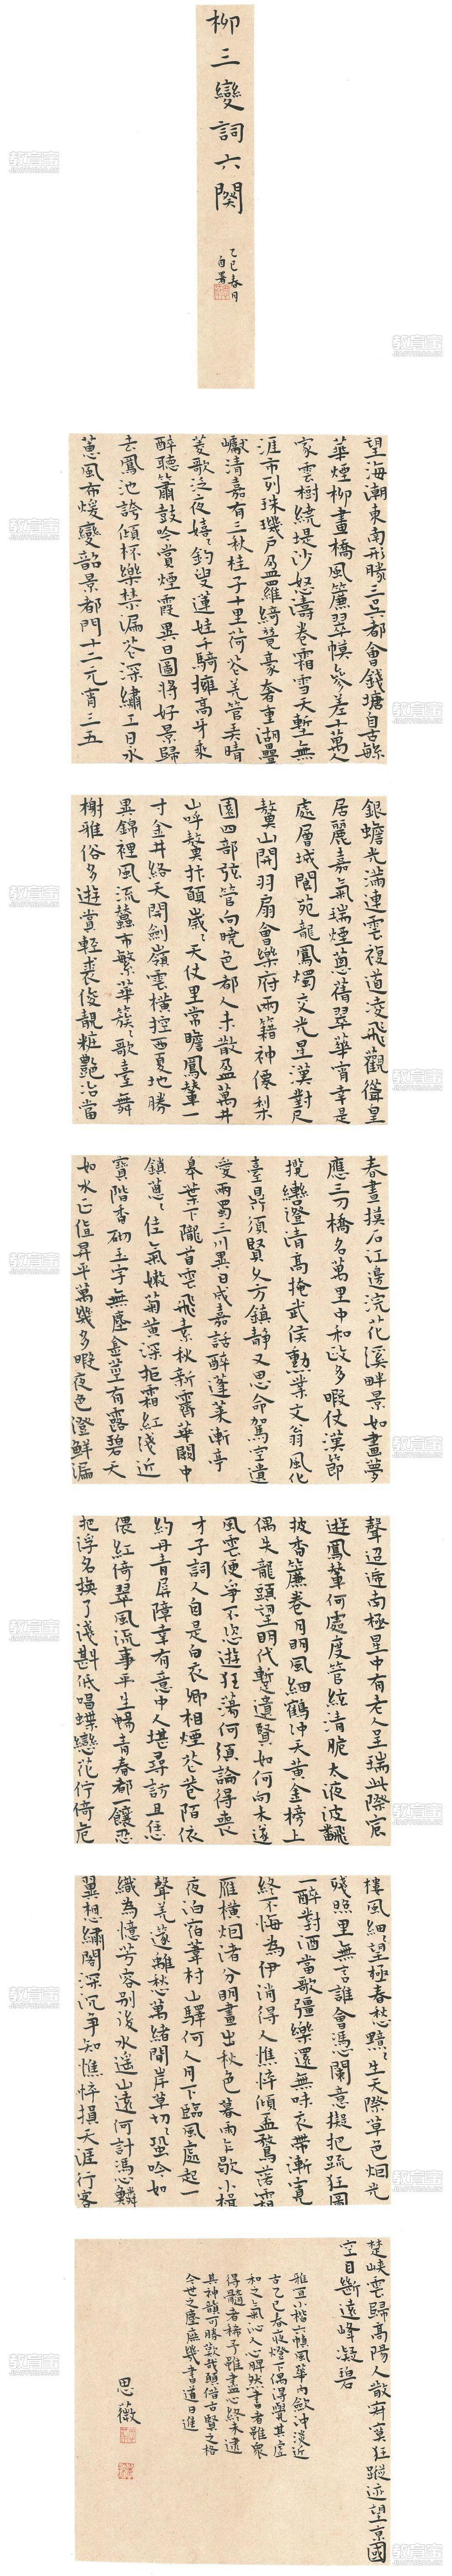 柳三變詞六闋
乙巳春月
自署
望海潮東南形勝三吳都會錢塘自古繁
華煙柳畫橋風簾翠幙參差十萬人
家雲樹繞堤沙怒濤卷霜雪天塹無
涯市列珠璣戶盈羅綺競豪奢重湖疊
巘清嘉有三秋桂子十里荷花羌管弄晴
菱歌泛夜嬉々釣叟蓮娃千騎擁高牙乘
醉聽簫鼓吟賞煙霞異日圖將好景歸
去鳳池誇傾杯樂禁漏花深繡工日永
蕙風布煖變韶景都門十二元宵三五
銀蟾光滿連雲複道凌飛觀聳皇
居麗嘉氣瑞煙蔥蒨翠華宵幸是
處層城閬苑龍鳳燭交光星漢對尺
鼇山開羽扇會樂府兩籍神僊梨
園四部弦管向曉色都人未散盈萬井
山呼鼇抃願歲々天仗里常瞻鳳輦一
寸金井絡天開劍嶺雲橫控西夏地勝
異錦裡風流蠶市繁華簇々歌臺舞
榭雅俗多遊賞輕裘俊靚粧艷冶當
春晝摸石江邊浣花溪畔景如畫夢
應三刀橋名萬里中和政多暇仗漢節
攬轡澄清高掩武侯勳業文翁風化
臺鼎須賢久方鎮靜又思命駕空遺
愛兩蜀三川異日成嘉話醉蓬萊漸亭
皋葉下隴首雲飛素秋新霽華闕中
鎖蔥々佳氣嫩菊黃深拒霜紅淺近
寶階香砌玉宇無塵金莖有露碧天
如水正值昇平萬幾多暇夜色澄鮮漏
聲迢遞南極星中有老人呈瑞此際宸
遊鳳輦何處度管絃清脆太液波飜
披香簾卷月明風細鶴沖天黃金榜上
偶失龍頭望明代暫遺賢如何向未遂
風雲便爭不恣遊狂蕩何須論得喪
才子詞人自是白衣卿相煙花巷陌依
約丹青屏障幸有意中人堪尋訪且恁
偎紅倚翠風流事平生暢青春都一饟忍
把浮名換了淺斟低唱蝶戀花佇倚危
樓風細々望極春愁黯々生天際草色烟光
殘照里無言誰會憑闌意擬把疏狂圖
一醉對酒當歌彊樂還無味衣帶漸寬
終不悔為伊消得人憔悴傾盃鶩落霜
雁橫烟渚分明畫出秋色暮雨乍歇小楫
夜泊宿葦村山驛何人月下臨風處起一
聲羌篴離愁萬緒閒岸草切々蛩吟如
織為憶芳容別後水遙山遠何計憑鱗
翼想繡閣深沉爭知憔悴損天涯行客
楚峽雲歸高陽人散寂寞狂蹤迹望京國
空目斷遠峰凝碧
雅宜小楷六幀風華內斂沖淡近
古乙巳春夜燈下偶得覺其虛
和之氣沁人心脾然書者雖眾
得髓者稀予雖盡心終未逮
其神韻可勝歎哉願借古賢之格
今世之塵庶幾書道日進
思薇
教育宝
JIAOYUBAO.CN